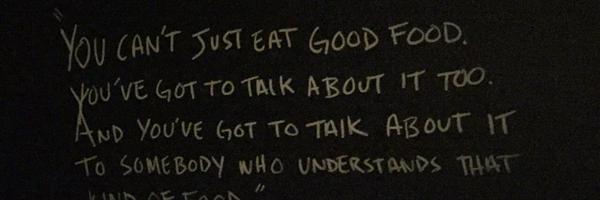 "YOU CAN'T JUST EAT GOOD FOOD.
YOU'VE GOT TO TALK ABOUT IT TOO.
AND YOU'VE GOT TO TALK ABOUT IT
TO SOMEBODY WHO UNDERSTANDS THAT
KIND OF FOOD."